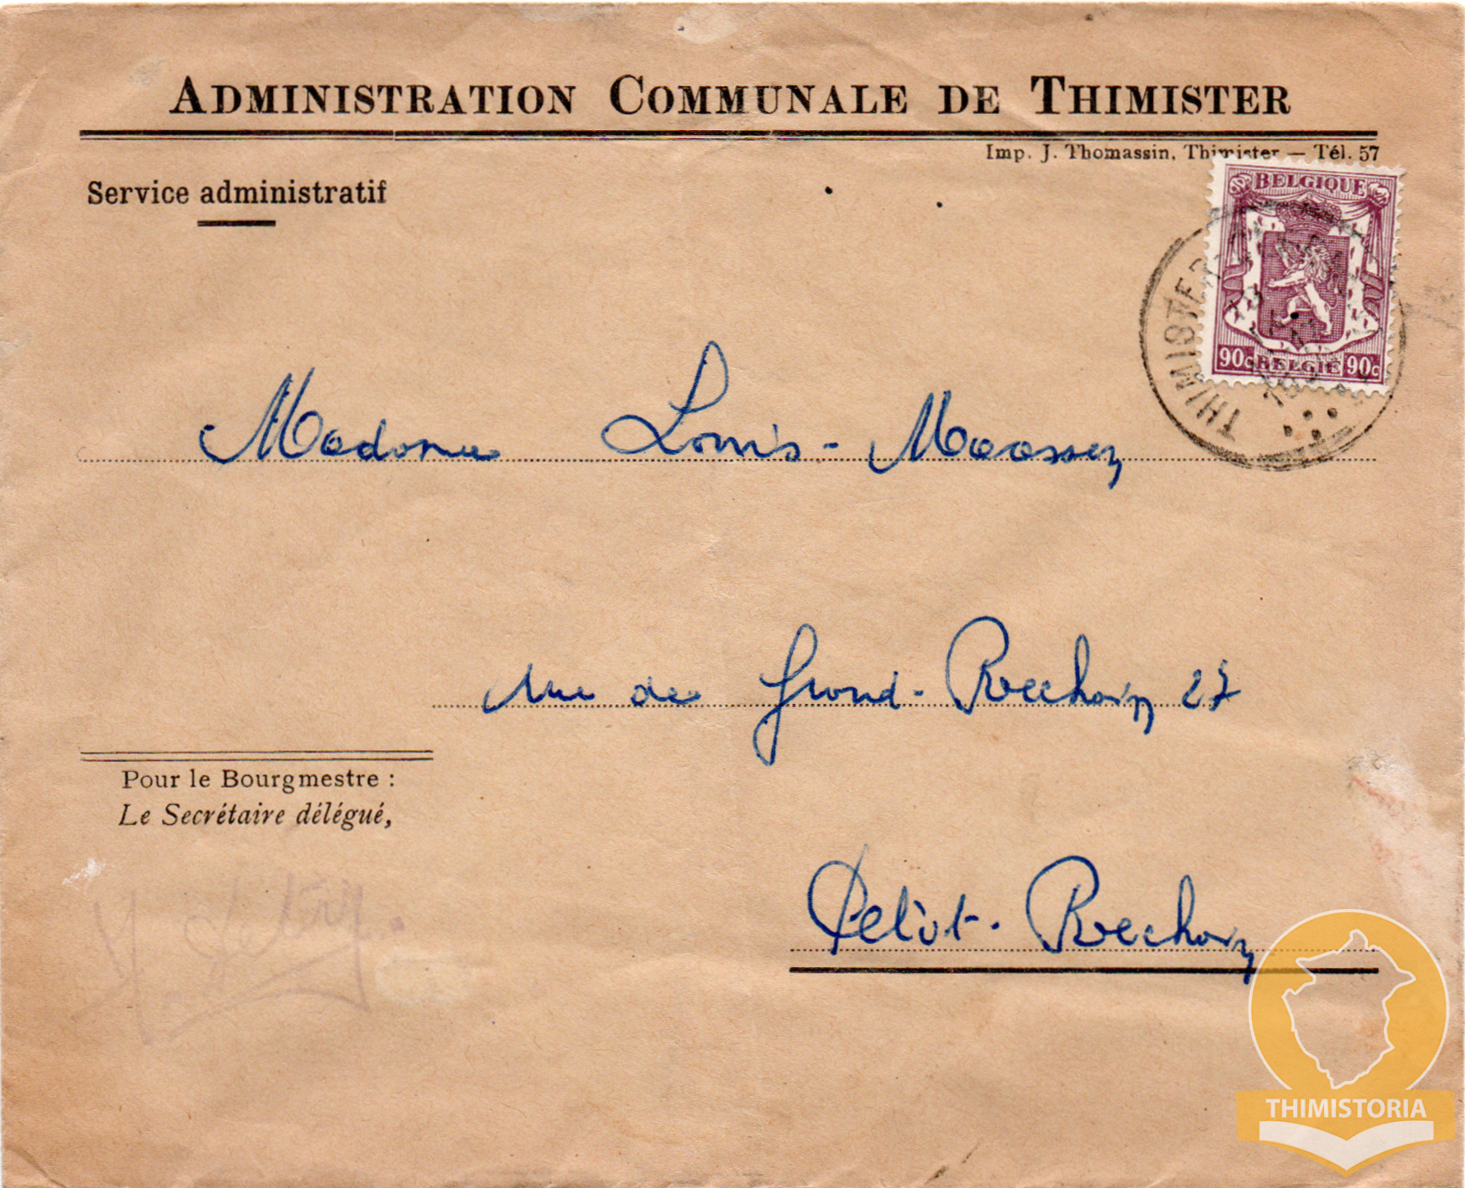 ADMINISTRATION COMMUNALE DE THIMISTER
Imp. J. Thomassin, Thimister — Tél. 57
Service administratif
BELGIQUE
90c BELGIË 90c
THIMISTER
Madame Louis-Maassen
rue de Grand-Rechain 27
Petit-Rechain
Pour le Bourgmestre :
Le Secrétaire délégué,
THIMISTORIA